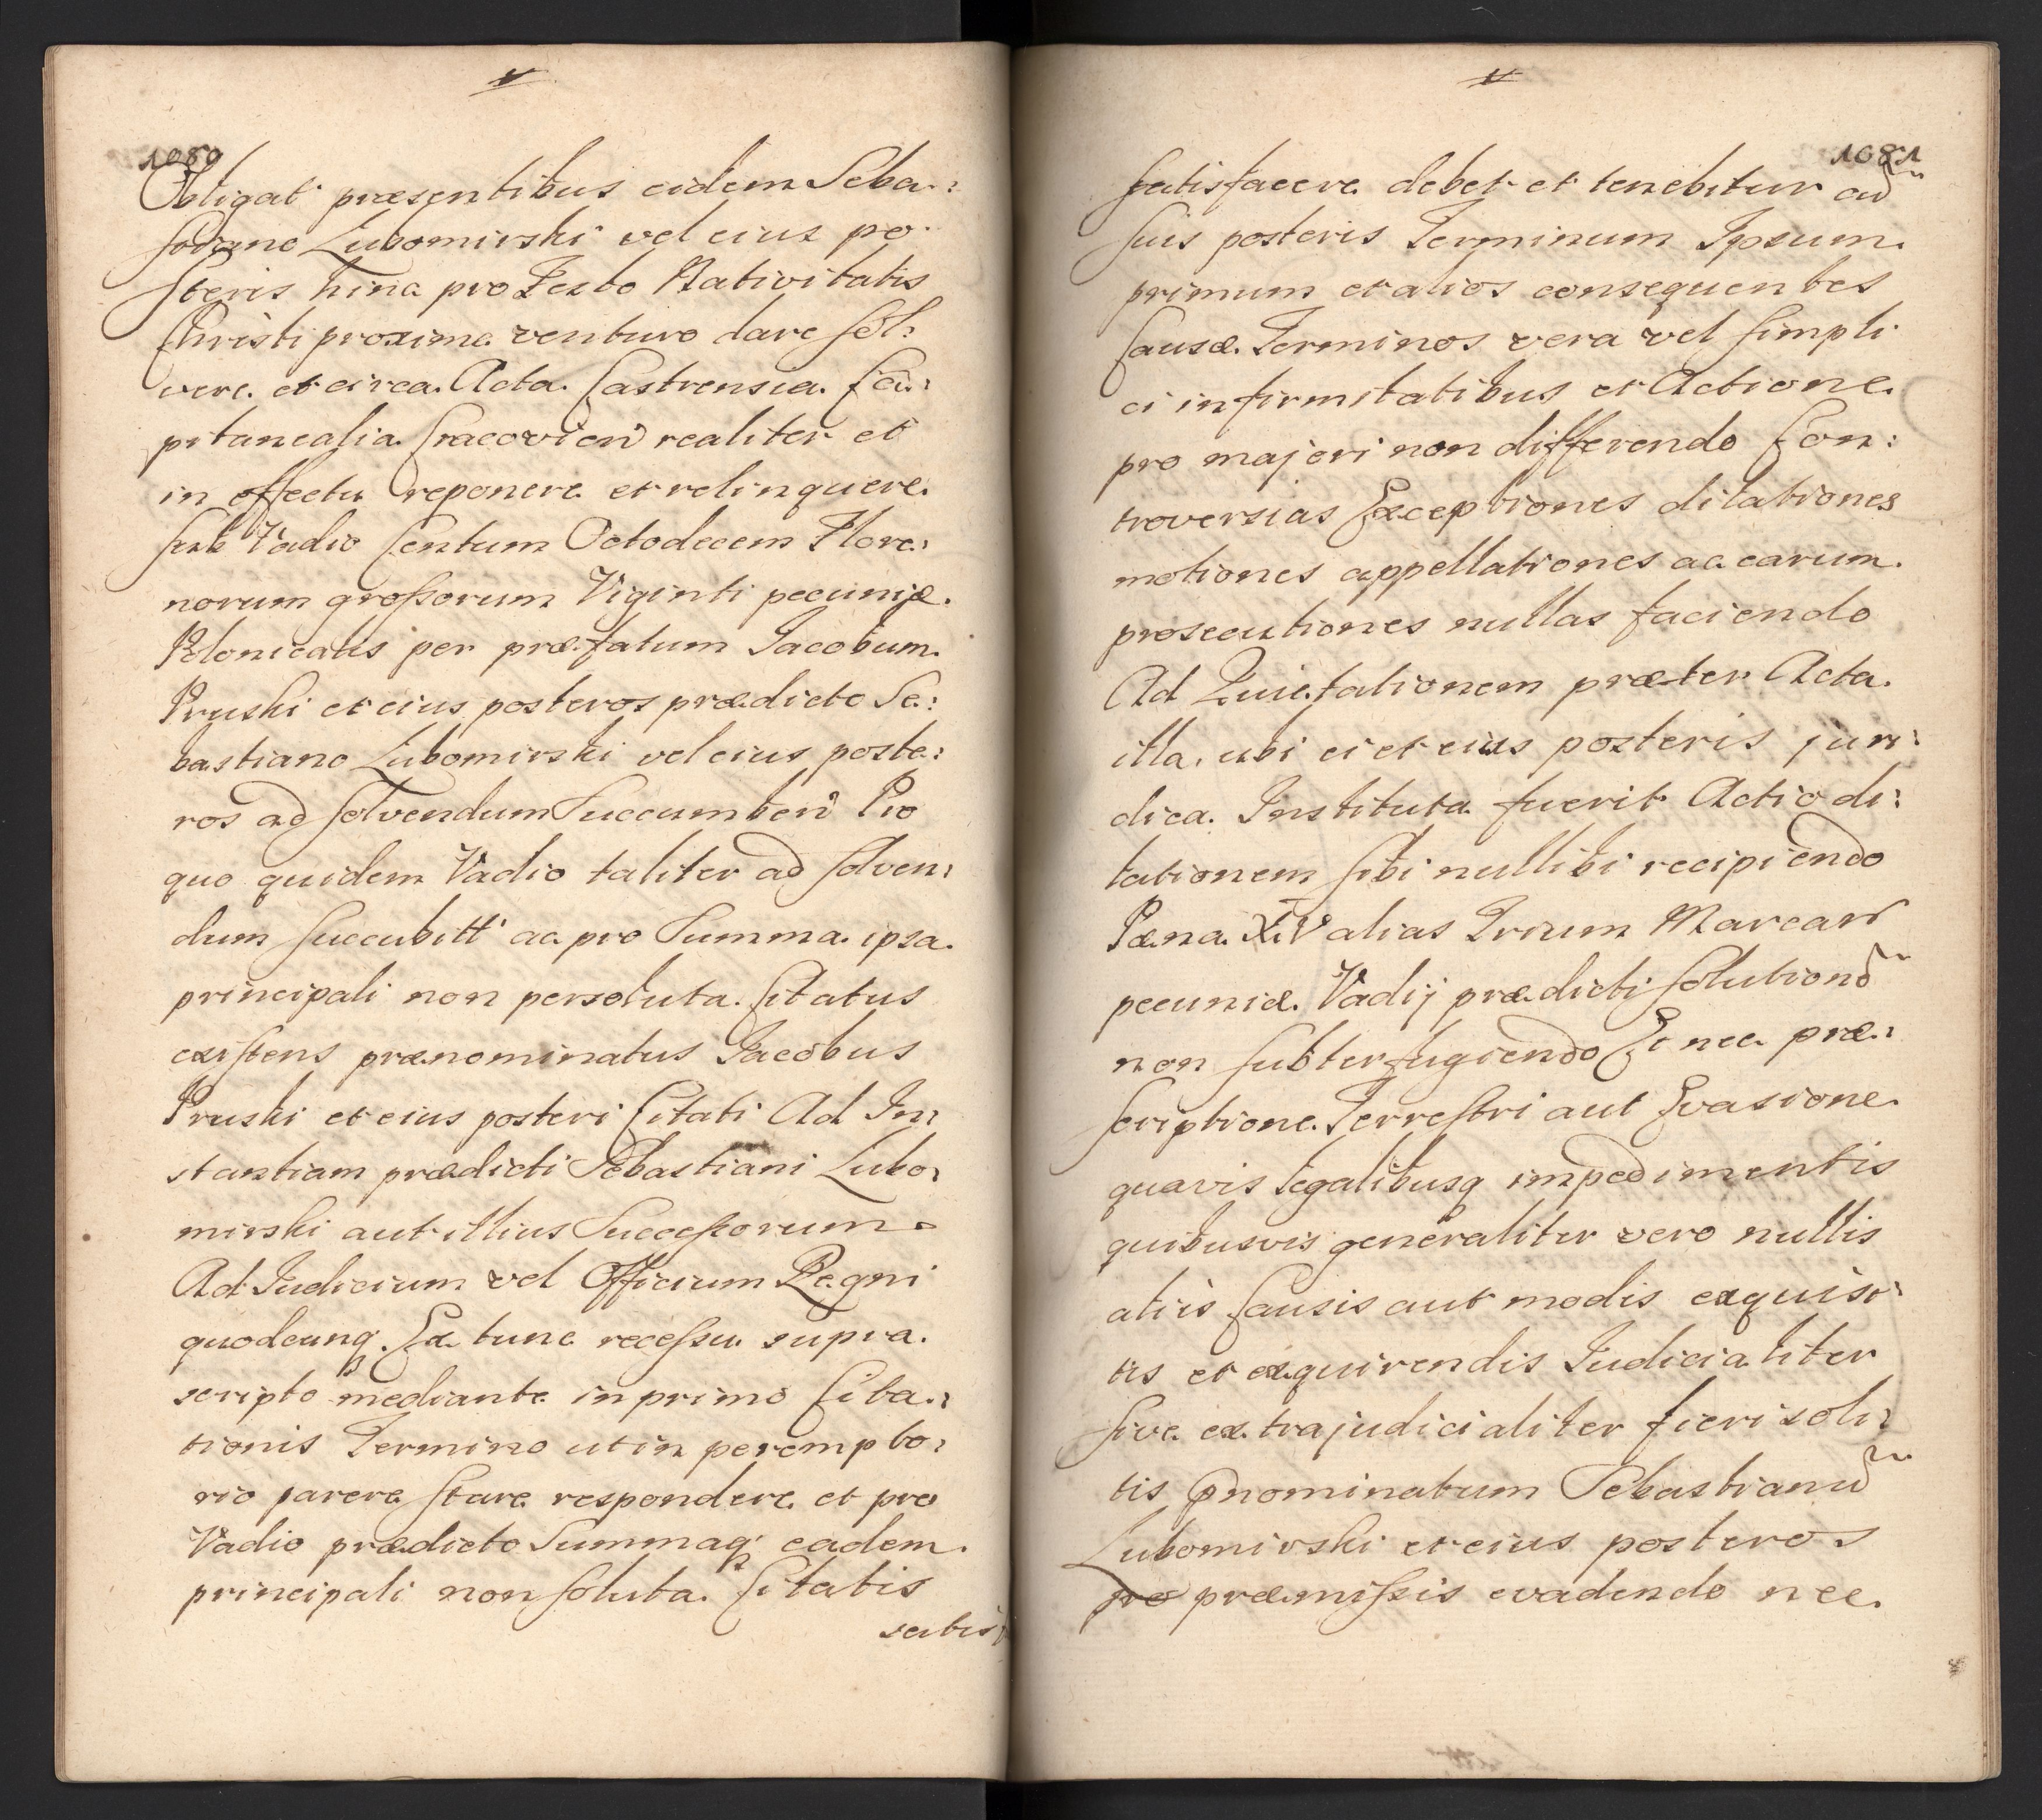 1080
Obligat præsentibus eidem Seba:
stiano Lubomirski vel eius po:
steris hinc pro Festo Nativitatis
Christi proxime venturo dare sol:
vere et circa Acta Castrensia Ca:
pitanealia Cracovien realiter et
in effectu reponere et relinquere
sub Vadio Centum Octodecem Flore:
norum grossorum Viginti pecuniæ
Polonicalis per præfatum Jacobum
Pruski et eius posteros prædicto Se:
bastiano Lubomirski vel eius poste:
ros ad solvendum Succumben Pro
quo quidem Vadio taliter ad solven:
dum succubitt ac pro Summa ipsa
principali non persoluta Citatus
existens prænominatus Jacobus
Pruski et eius posteri Citati Ad In:
stantiam prædicti Sebastiani Lubo:
mirski aut illius Successorum
Ad Judicium vel Officium Regni
quodcunq. Ex tunc recessu supra
scripto mediante in primo Cita:
tionis Termino ut in perempto:
rio parere stare respondere et pro
Vadio prædicto Summaq eadem
principali non soluta Citatis
satis:
1081
satisfacere debet et tenebitur cu
suis posteris Terminum Ipsum
primum et alios consequentes
Causæ Terminos vera vel simpli
ci infirmitatibus et Actione
pro majori non differendo Con:
troversias Exceptiones dilationes
motiones appellationes ac earum
prosecutiones nullas faciendo
Ad Quietationem præter Acta
illa, ubi ei et eius posteris juri:
dica Instituta fuerit Actio di:
lationem sibi nullibi recipiendo
Pæna XIV alias Trium Marcar
pecuniæ Vadij prædicti solution
non subterfugiendo Et nec præ:
scriptione Terrestri aut Evasione
quavis legalibusq impedimentis
quibusvis generaliter vero nullis
aliis Causis aut modis exquisi:
tis et exquirendis Judicialiter
sive extrajudicialiter fieri soli:
tis pnominatum Sebastianu
Lubomirski et eius posteros
pro præmissis evadendo nec